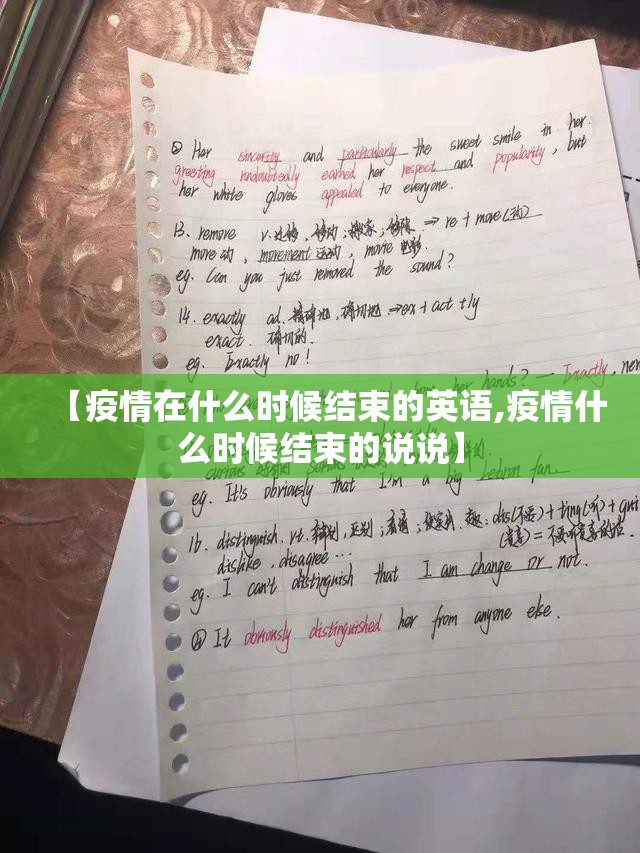 ② Her sincerity and particularly the sweet smile in her
greeting undoubtedly earned her respect and popularity, but
her white gloves appealed to everyone.
13. remove v. ⇒ re + move(动)
move 动, movement 运动, movie 电影.
eg. Can you just removed the sound?
14. exactly ad. 精确地, 确切地 ⇒ ex + act + ly
exact. 确切的.
eg. Exactly no!
her hands? — Exactly,
【疫情在什么时候结束的英语,疫情什
么时候结束的说说】
curious
eg. It's obviously that I'm a big Lebron fan.
16. distinguish. vt. 辨别, 区别; 看清; dis(不要)+ting(听)+
dislike, disagree ...
eg. I can't distinguish that I am change or not.
② It obviously distinguished her from anyone else.